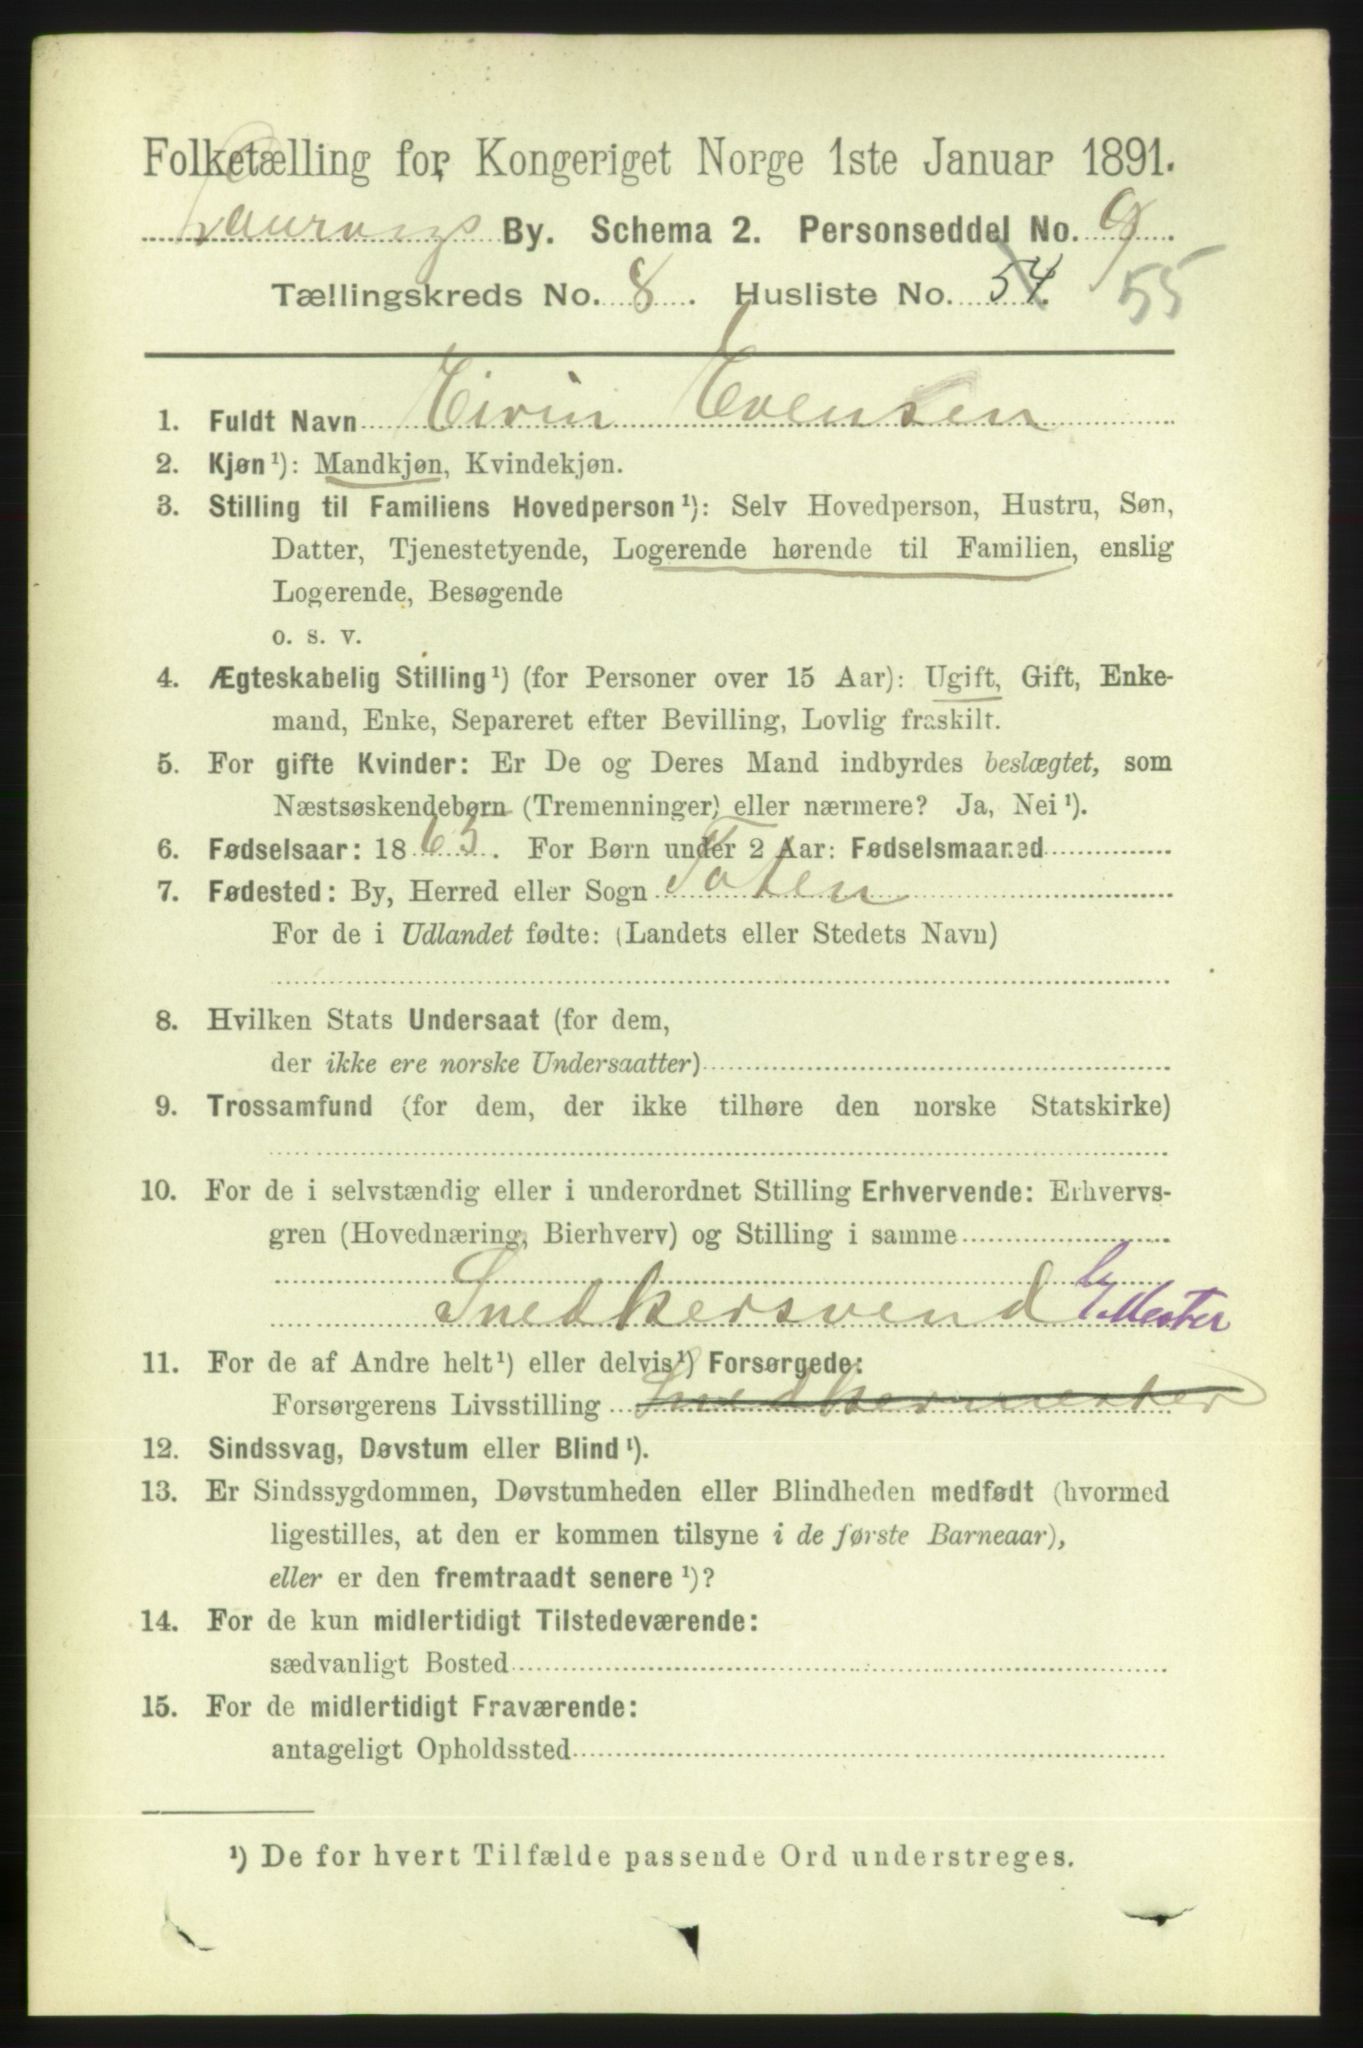 Folketælling for Kongeriget Norge 1ste Januar 1891.
Laurvigs By. Schema 2. Personseddel No. 9.
Tællingskreds No. 8. Husliste No. 54. 55
1. Fuldt Navn Eivin Evensen
2. Kjøn ¹): Mandkjøn, Kvindekjøn.
3. Stilling til Familiens Hovedperson ¹): Selv Hovedperson, Hustru, Søn,
Datter, Tjenestetyende, Logerende hørende til Familien, enslig
Logerende, Besøgende
o. s. v.
4. Ægteskabelig Stilling ¹) (for Personer over 15 Aar): Ugift, Gift, Enke-
mand, Enke, Separeret efter Bevilling, Lovlig fraskilt.
5. For gifte Kvinder: Er De og Deres Mand indbyrdes beslægtet, som
Næstsøskendebørn (Tremenninger) eller nærmere? Ja, Nei ¹).
6. Fødselsaar: 1863. For Børn under 2 Aar: Fødselsmaaned
7. Fødested: By, Herred eller Sogn Toten
For de i Udlandet fødte: (Landets eller Stedets Navn)
8. Hvilken Stats Undersaat (for dem,
der ikke ere norske Undersaatter)
9. Trossamfund (for dem, der ikke tilhøre den norske Statskirke)
10. For de i selvstændig eller i underordnet Stilling Erhvervende: Erhvervs-
gren (Hovednæring, Bierhverv) og Stilling i samme
Snedkersvend Mester
11. For de af Andre helt ¹) eller delvis ¹) Forsørgede:
Forsørgerens Livsstilling Snedkermester
12. Sindssvag, Døvstum eller Blind ¹).
13. Er Sindssygdommen, Døvstumheden eller Blindheden medfødt (hvormed
ligestilles, at den er kommen tilsyne i de første Barneaar),
eller er den fremtraadt senere ¹)?
14. For de kun midlertidigt Tilstedeværende:
sædvanligt Bosted
15. For de midlertidigt Fraværende:
antageligt Opholdssted
¹) De for hvert Tilfælde passende Ord understreges.